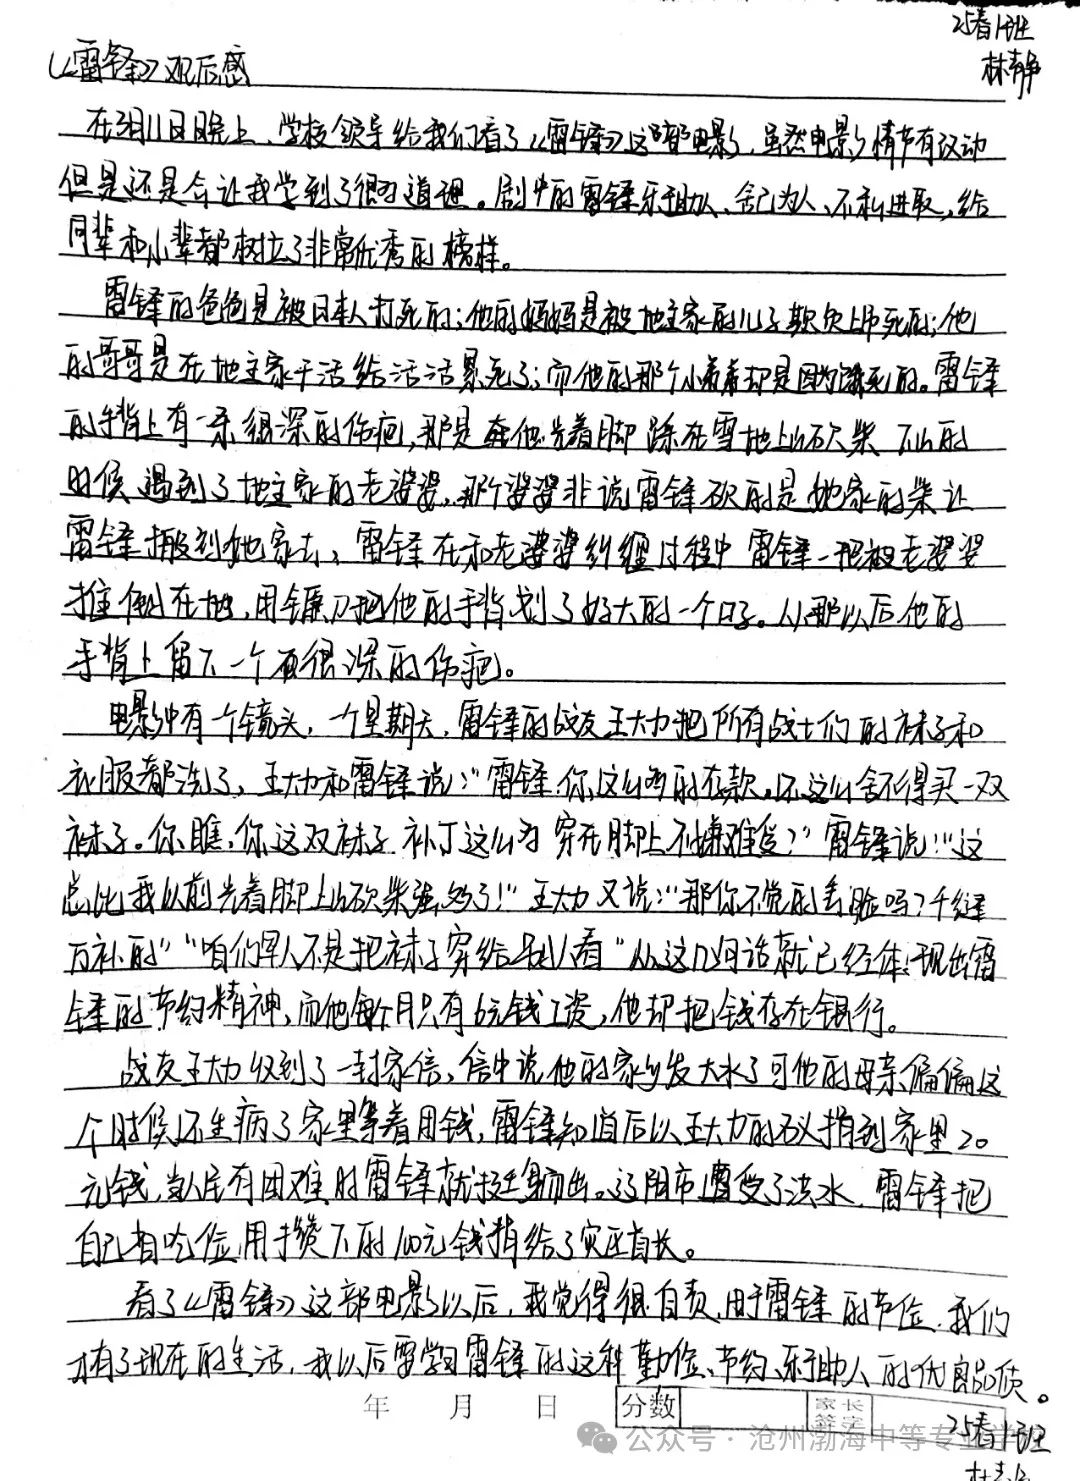 25春1班
林静
《雷锋》观后感
在3月11日晚上,学校领导给我们看了《雷锋》这部电影,虽然电影情节有改动
但是还是会让我学到了很多道理。剧中的雷锋乐于助人、舍己为人、不私进取,给
同辈和小辈都树立了非常优秀的榜样。
雷锋的爸爸是被日本人打死的;他的妈妈是被地主家的儿子欺负上吊死的;他
的哥哥是在地主家干活给活活累死了;而他的那个小弟弟却是因为饿死的。雷锋
的手背上有一条很深的伤疤,那是在他光着脚踩在雪地上山砍柴下山的
时候遇到了地主家的老婆婆,那个婆婆非说雷锋砍的是她家的柴让
雷锋搬到她家去,雷锋在和老婆婆纠缠过程中雷锋一把被老婆婆
推倒在地,用镰刀把他的手背划了好大的一个口子。从那以后他的
手背上留下一个有很深的伤疤。
电影中有一个镜头,一个星期天,雷锋的战友王大力把所有战士们的袜子和
衣服都洗了,王大力和雷锋说:“雷锋你这么多的存款,还这么舍不得买一双
袜子。你瞧,你这双袜子补丁这么多穿在脚上不嫌难受?”雷锋说:“这
总比我以前光着脚上山砍柴强多了!”王大力又说:“那你不觉的丢脸吗?千缝
万补的”“咱们军人不是把袜子穿给别人看”从这几句话就已经体现出雷
锋的节约精神,而他每个月只有6元钱工资,他却把钱存在银行。
战友王大力收到了一封家信,信中说他的家乡发大水了可他的母亲偏偏这
个时候还生病了家里等着用钱,雷锋知道后以王大力的名义捎到家里20
元钱,当人民有困难时雷锋就挺身而出。辽阳市遭受了洪水,雷锋把
自己省吃俭用手攒下的100元钱捎给了灾区首长。
看了《雷锋》这部电影以后,我觉得很自责,由于雷锋的节俭,我们
才有了现在的生活,我以后需学习雷锋的这种勤俭、节约、乐于助人的优良品质。
年 月 日 分数 家长签字
25春1班
公众号·沧州渤海中等专业学校